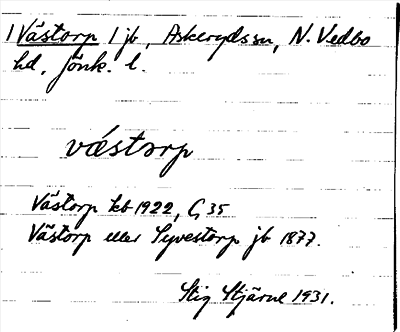 1 Västorp 1 jb, Askerydssn, N. Vedbo
hd, Jönk. l.
vá̈storp
Västorp kb 1922, G 35
Västorp eller Syvestorp jb 1877.
Stig Stjärne 1931.